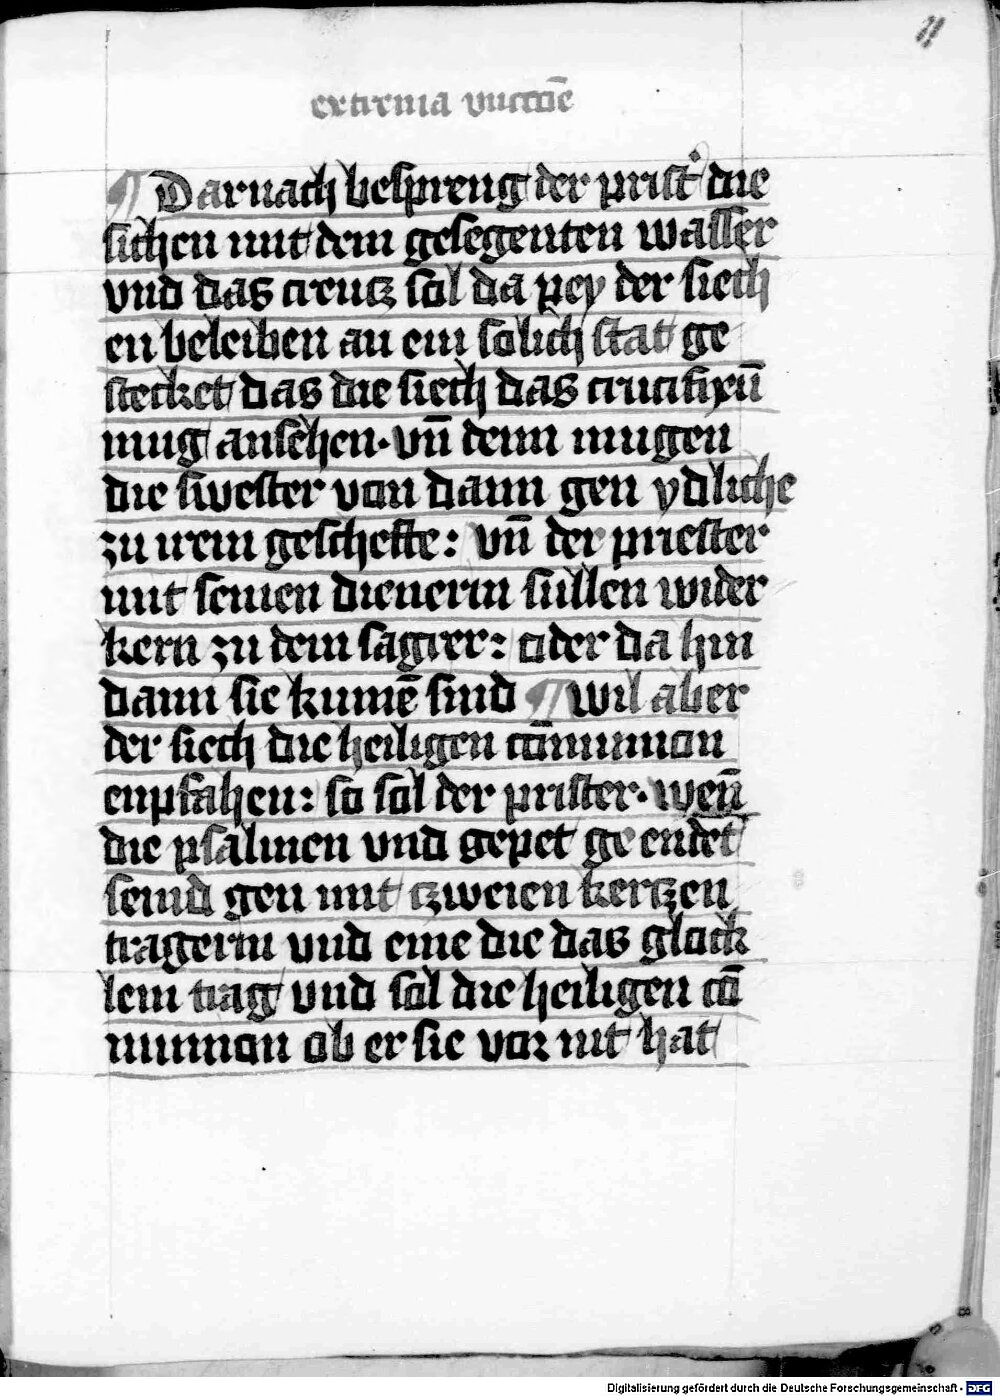 11
extrema vnccōe
¶ Darnach bespreng der prist' die
sichen mit dem gesegenten wasser
vnd das creutz sol da pey der siech
en beleiben an ein solich stat ge
stecket das die siech das crucifixū
mug ansehen · vn̄ denn mugen
die swester von dann gen ydliche
zu irem geschefte : vn̄ der priester
mit seinen dienerin sullen wider
kern zu dem sagrer : oder da hin
dann sie kumē sind ¶ wil aber
der siech die heiligen cōmunion
enpfahen : so sol der prister · wen̄
die psalmen vnd gepet ge endet
seind gen mit tzweien kertzen
tragerin vnd eine die das glock
lein trag vnd sol die heiligen cō
munion ob er sie vor nit hat
Digitalisierung gefördert durch die Deutsche Forschungsgemeinschaft - DFG